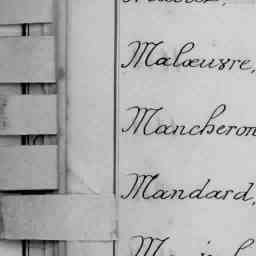 Malœuvre,
Mancheron
Mandard,